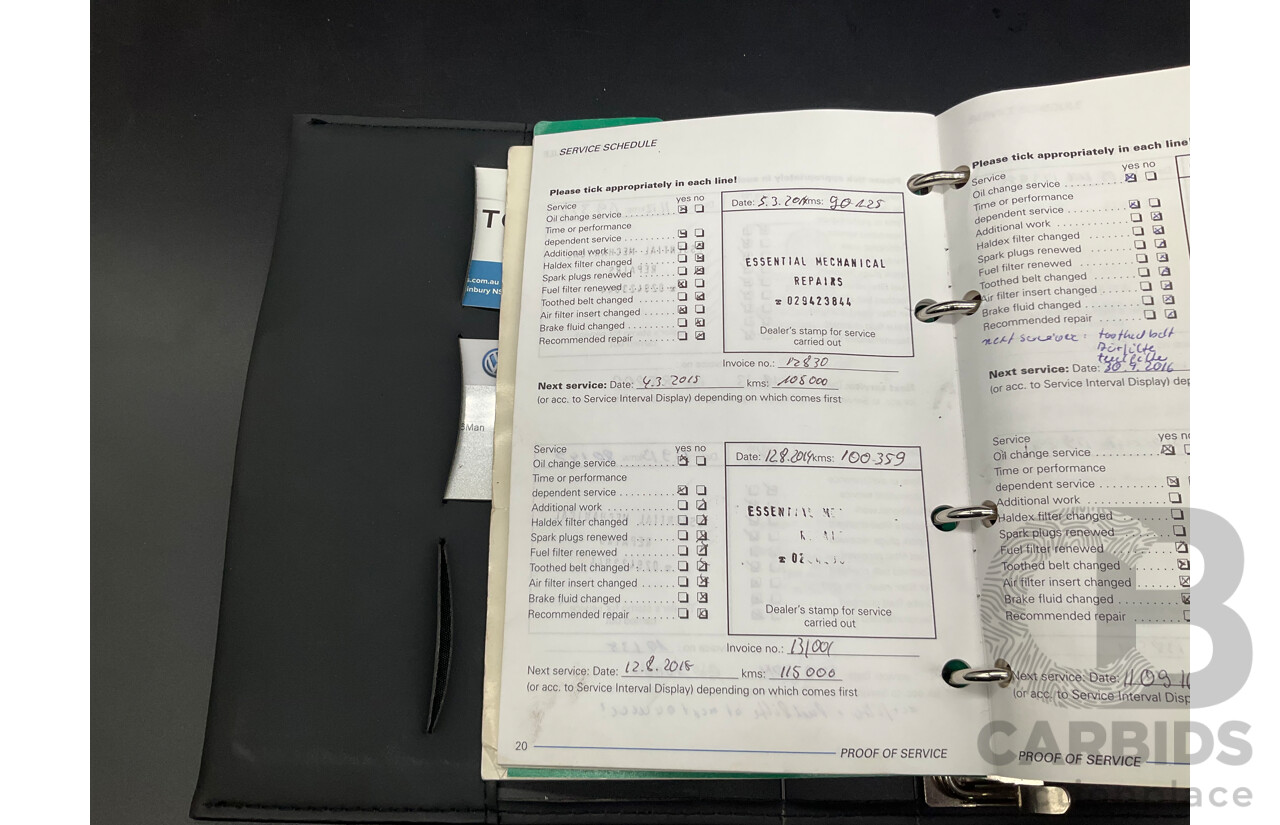 SERVICE SCHEDULE
Please tick appropriately in each line!
yes no
Service
Oil change service
Time or performance
dependent service
Additional work
Haldex filter changed
Spark plugs renewed
Fuel filter renewed
Toothed belt changed
Air filter insert changed
Brake fluid changed
Recommended repair
Date: 5.3.2014 kms: 90125
ESSENTIAL MECHANICAL
REPAIRS
☎ 029423844
Dealer's stamp for service
carried out
Invoice no.: 12830
Next service: Date: 4.3.2015 kms: 105000
(or acc. to Service Interval Display) depending on which comes first
Service yes no
Oil change service
Time or performance
dependent service
Additional work
Haldex filter changed
Spark plugs renewed
Fuel filter renewed
Toothed belt changed
Air filter insert changed
Brake fluid changed
Recommended repair
Date: 12.8.2014 kms: 100359
ESSENTIAL
Dealer's stamp for service
carried out
Invoice no.: 13100
Next service: Date: 12.8.2015 kms: 115000
(or acc. to Service Interval Display) depending on which comes first
20
PROOF OF SERVICE
Please tick appropriately in each line
yes no
Service
Oil change service
Time or performance
dependent service
Additional work
Haldex filter changed
Spark plugs renewed
Fuel filter renewed
Toothed belt changed
Air filter insert changed
Brake fluid changed
Recommended repair
next service: toothed belt
Next service: Date: 30.9.2016
(or acc. to Service Interval Display) dep
Service yes no
Oil change service
Time or performance
dependent service
Additional work
Haldex filter changed
Spark plugs renewed
Fuel filter renewed
Toothed belt changed
Air filter insert changed
Brake fluid changed
Recommended repair
Next service: Date:
(or acc. to Service Interval Disp
PROOF OF SERVICE
s.com.au
inbury NS
Man
CARBIDS